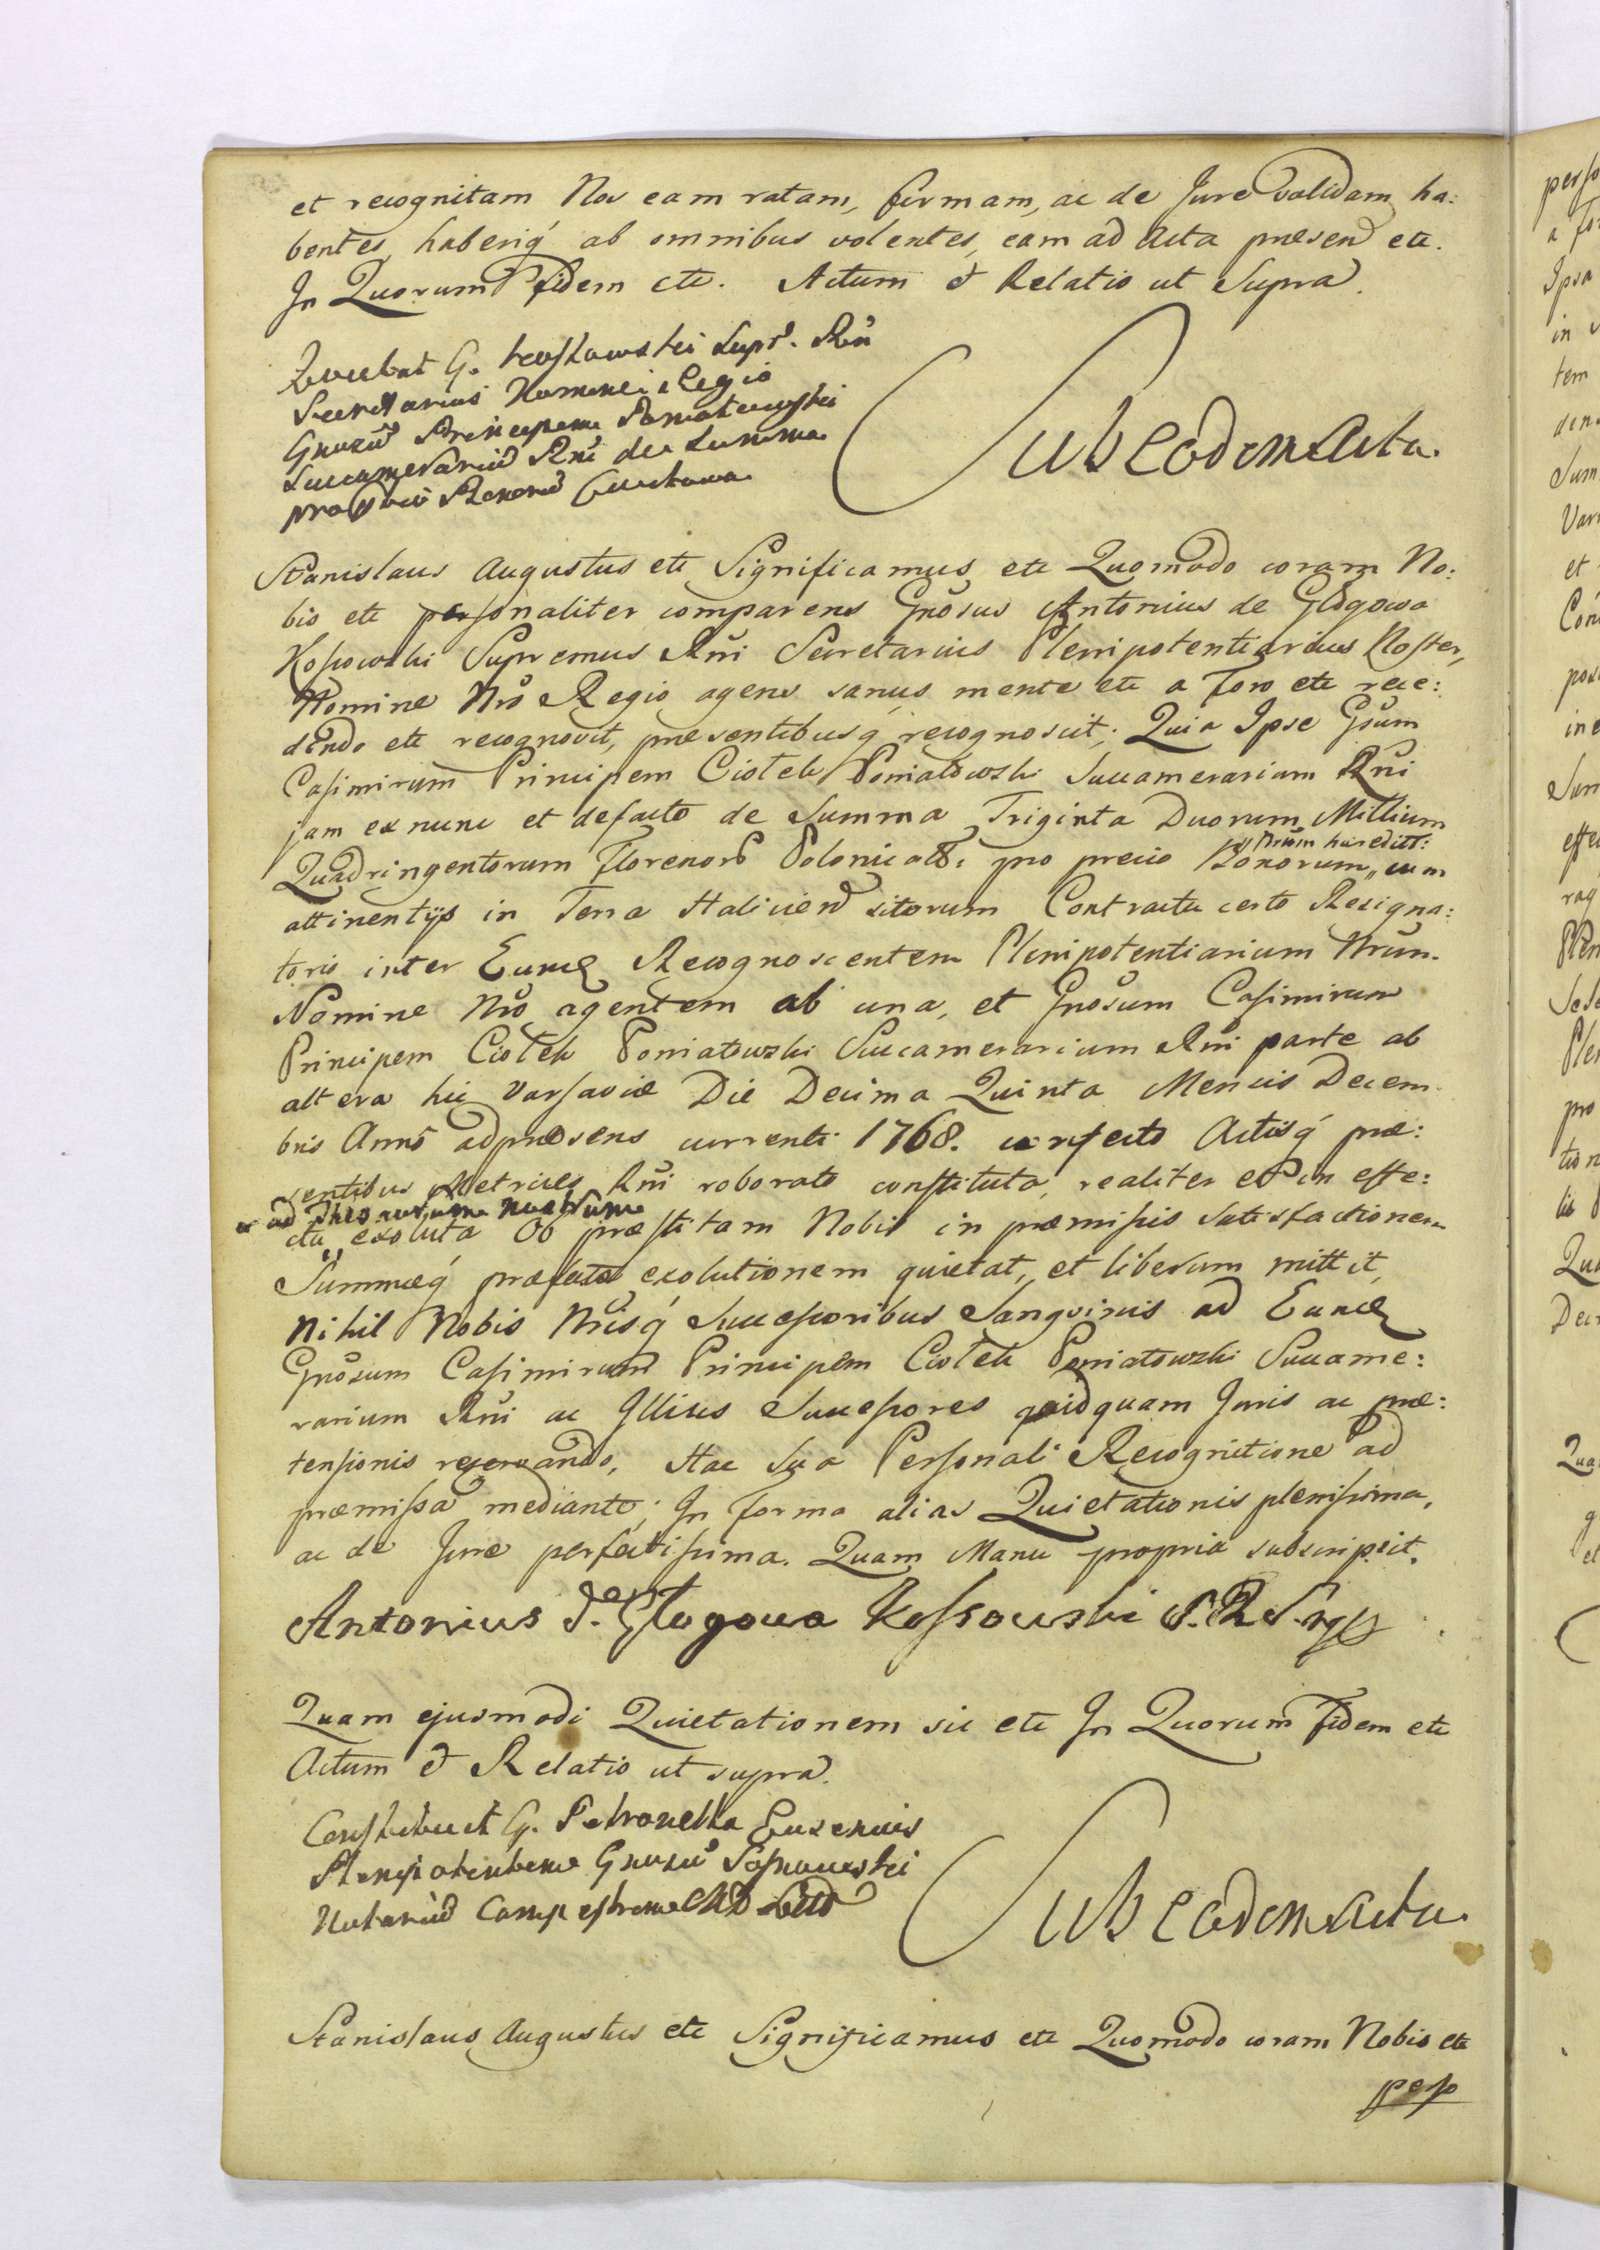 et recognitam Nos eam ratam, firmam, ac de Jure validam ha:
bentes, haberiq́ ab omnibus volentes, eam ad Acta præsen etc.
In Quorum fidem etc. Actum et Relatio ut Supra.
G. Kossowski Supr. Rñi
Secretarius Nomine Regio
Gnosum Principem Poniatowski
Succamerarium Rñi de Summa
Sub eodem Actu.
Stanislaus Augustus etc Significamus etc Quomodo coram No:
bis etc personaliter comparens Gnosus Antonius de Glogowa
Kossowski Supremus Rñi Secretarius Plenipotentiarius Noster,
Nomine Nrõ Regio agens sanus mente etc a foro etc rece:
dendo etc recognovit, præsentibusq́ recognoscit; Quia Ipse Gsum
Casimirum Principem Ciołek Poniatowski Succamerarium Rñi
jam ex nunc et defacto de Summa Triginta Duorum Millium
Quadringentorum Florenor Polonical: pro precio Bonorum,, cum
,, Nrum hæredit:
attinentijs in Terra Halicien sitorum Contractu certo Resigna:
torio inter Eund Recognoscentem Plenipotentiarium Nrum.
Nomine Nrõ agentem ab una, et Gnosum Casimirum
Principem Ciołek Poniatowski Succamerarium Rñi parte ab
altera hic Varsaviæ Die Decima Quinta Mensis Decem
bris Anno adpræsens currenti 1768. confecto Actisq́ præ:
sentibus Metrices Rñi roborato constituta, realiter et in effe:
,, ac ad Thesaurum Nostrum
ctu ,, exoluta Ob præstitam Nobis in præmissis Satisfactionem
Summæq́ præfatæ exolutionem quietat, et liberum mittit,
Nihil Nobis Nrisq́ Successoribus Sangvinis ad Eund
Gnosum Casimirum Principem Ciołek Poniatowski Succame:
rarium Rñi ac Illius Successores quidquam Juris ac præ:
tensionis reservando, Hac Sua Personali Recognitione ad
præmissa mediante; In forma alias Quietationis plenissima,
ac de Jure perfectissima. Quam Manu propria subscripsit.
Antonius de Glogowa Kossowski S. R. S. mpp
Quam ejusmodi Quietationem sic etc In Quorum Fidem etc
Actum et Relatio ut supra.
Constituit G. Petronella
Plenipotentem Gnosum Sosnowski
Notarium Campestrem MD Litt
Sub eodem Actu.
Stanislaus Augustus etc Significamus etc Quomodo coram Nobis etc
perso